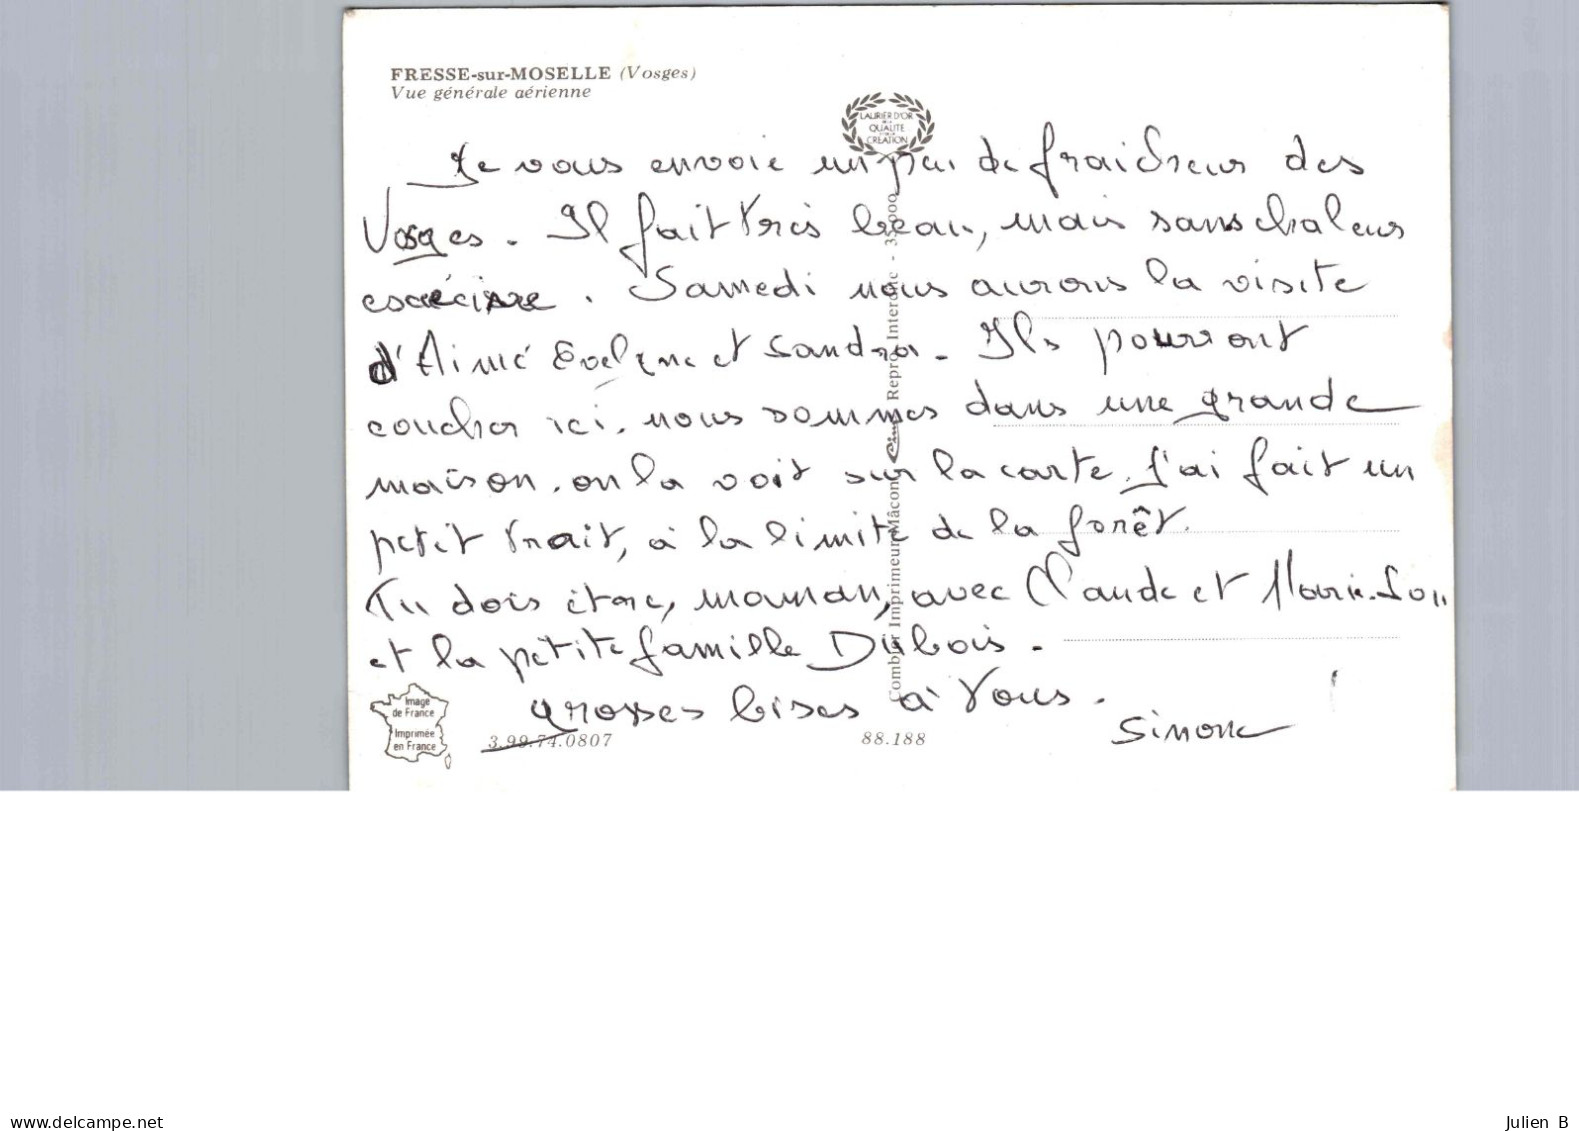 FRESSE-sur-MOSELLE (Vosges)
Vue générale aérienne
LAURIER D'OR
QUALITE
CREATION
Je vous envoie un peu de fraicheur des
Vosges. Il fait très beau, mais sans chaleur
. Samedi nous aurons la visite
d'Aimé Evelyne et Sandra. Ils pourront
coucher ici. nous sommes dans une grande
maison. on la voit sur la carte. J'ai fait un
petit trait, à la limite de la forêt.
Tu dois être, maman, avec Claude et Marie-Lou
et la petite famille Dubois.
grosses bises à Vous.
Simone
Combier Imprimeur Mâcon Repro. Interdite - 35.000
Image
de France
Imprimée
en France
3.99.74.0807
88.188
www.delcampe.net
Julien B